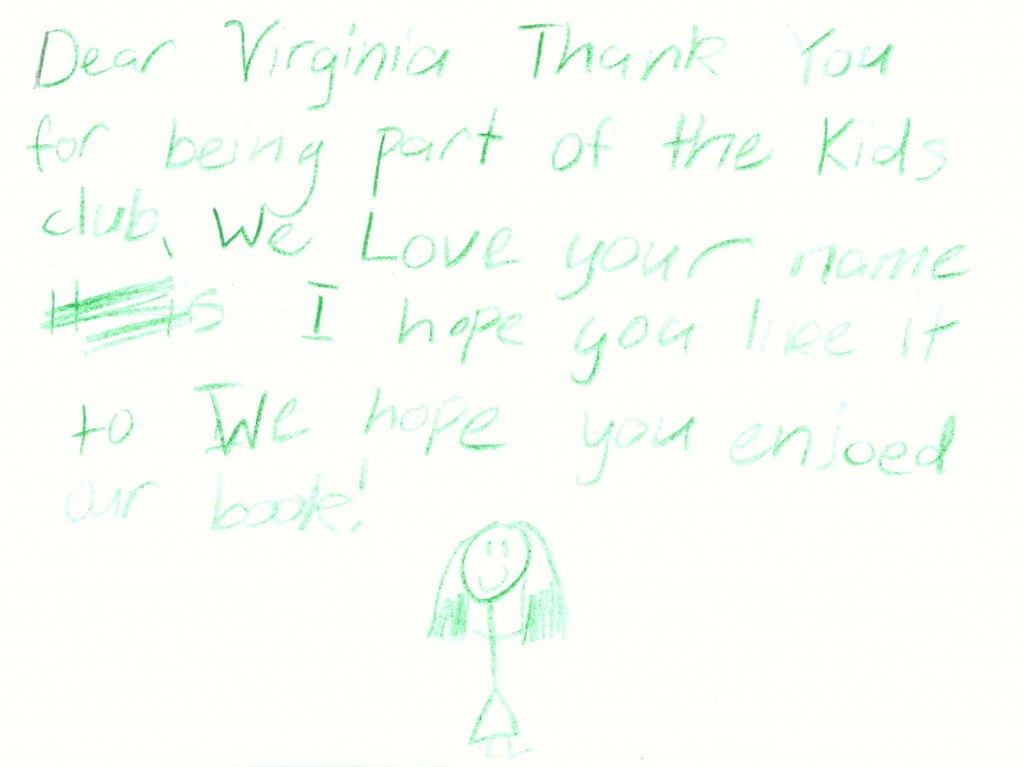 Dear Virginia Thank You
for being part of the Kids
club, We Love your name
I hope you like it
to We hope you enjoed
our book!